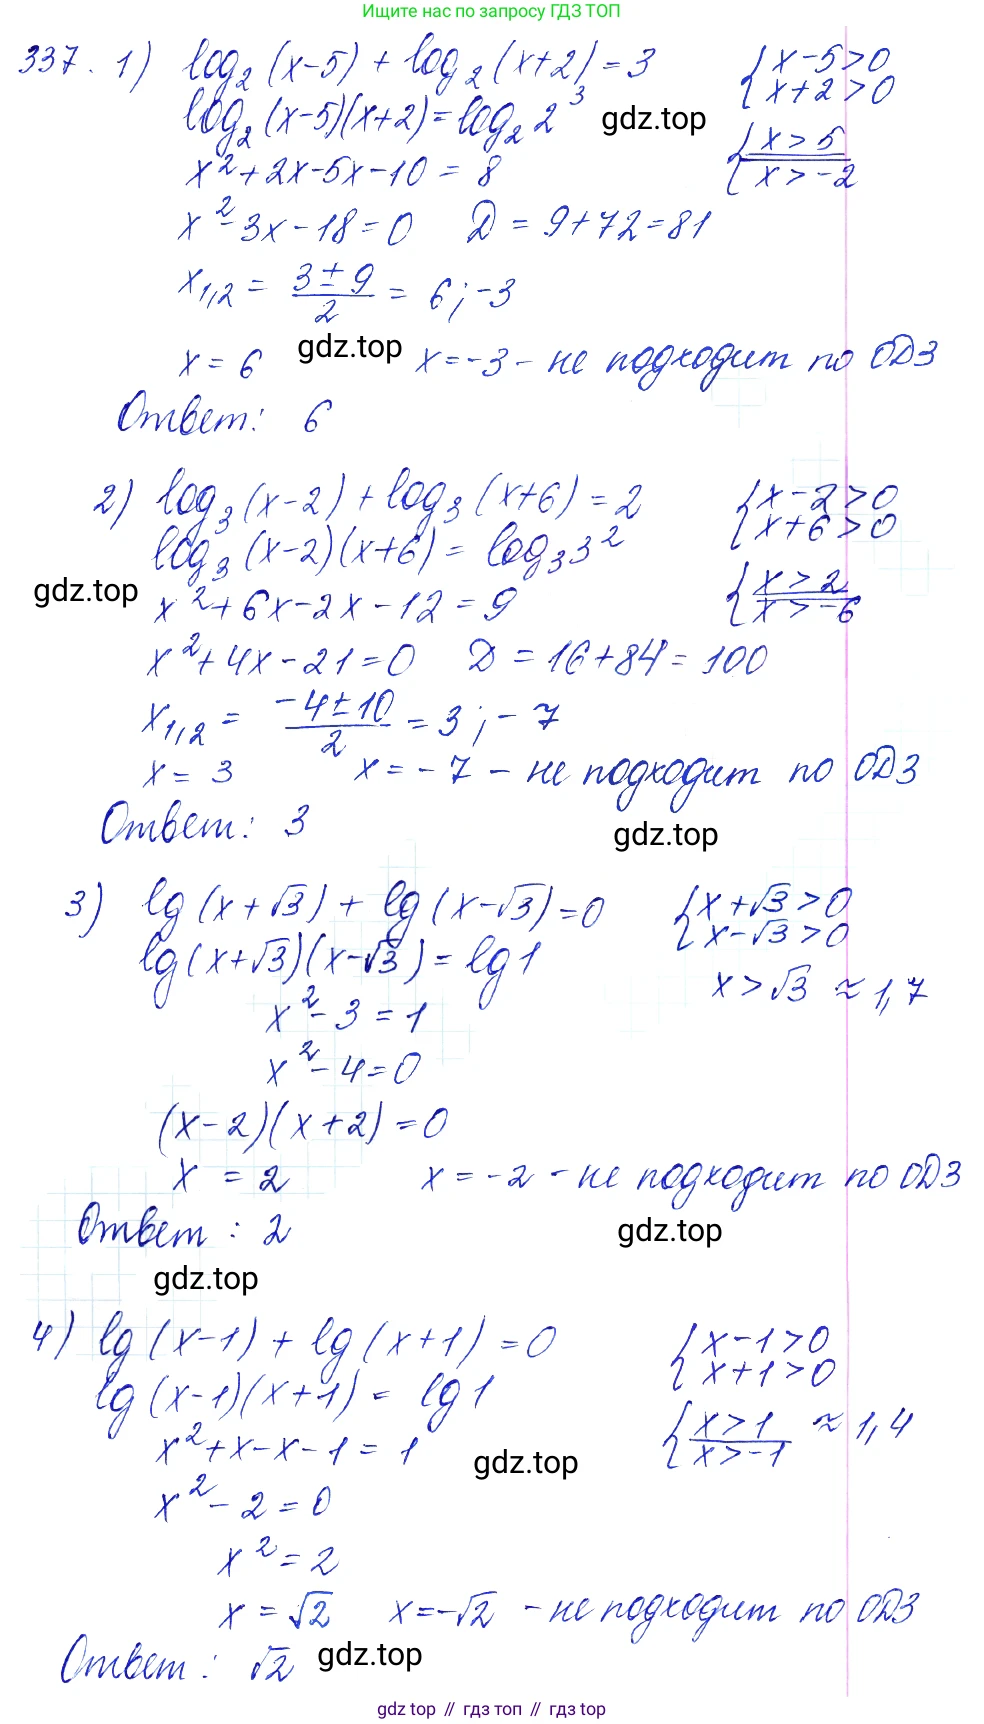 Ищите нас по запросу ГДЗ ТОП
337. 1) log₂(x-5) + log₂(x+2) = 3 { x-5>0
{ x+2>0
log₂(x-5)(x+2) = log₂2³ gdz.top
{ x>5
x²+2x-5x-10 = 8 { x>-2
x²-3x-18=0 D = 9+72=81
x₁,₂ = (3±9)/2 = 6; -3
x = 6 gdz.top x=-3 - не подходит по ОДЗ
Ответ: 6
2) log₃(x-2) + log₃(x+6) = 2 { x-2>0
{ x+6>0
log₃(x-2)(x+6) = log₃3²
gdz.top x²+6x-2x-12=9 { x>2
{ x>-6
x²+4x-21=0 D = 16+84=100
x₁,₂ = (-4±10)/2 = 3; -7
x = 3 x = -7 - не подходит по ОДЗ
Ответ: 3 gdz.top
3) lg(x+√3) + lg(x-√3)=0 { x+√3>0
{ x-√3>0
lg(x+√3)(x-√3) = lg1
x>√3 ≈1,7
x²-3=1
x²-4=0
(x-2)(x+2)=0
x = 2 x=-2 - не подходит по ОДЗ
Ответ: 2 gdz.top
gdz.top
4) lg(x-1) + lg(x+1) = 0 { x-1>0
{ x+1>0
lg(x-1)(x+1) = lg1
{ x>1 ≈1,4
x²+x-x-1=1 gdz.top { x>-1
x²-2=0
x²=2
x = √2 x=-√2 - не подходит по ОДЗ
Ответ: √2 gdz.top
gdz top // гдз топ // gdz top